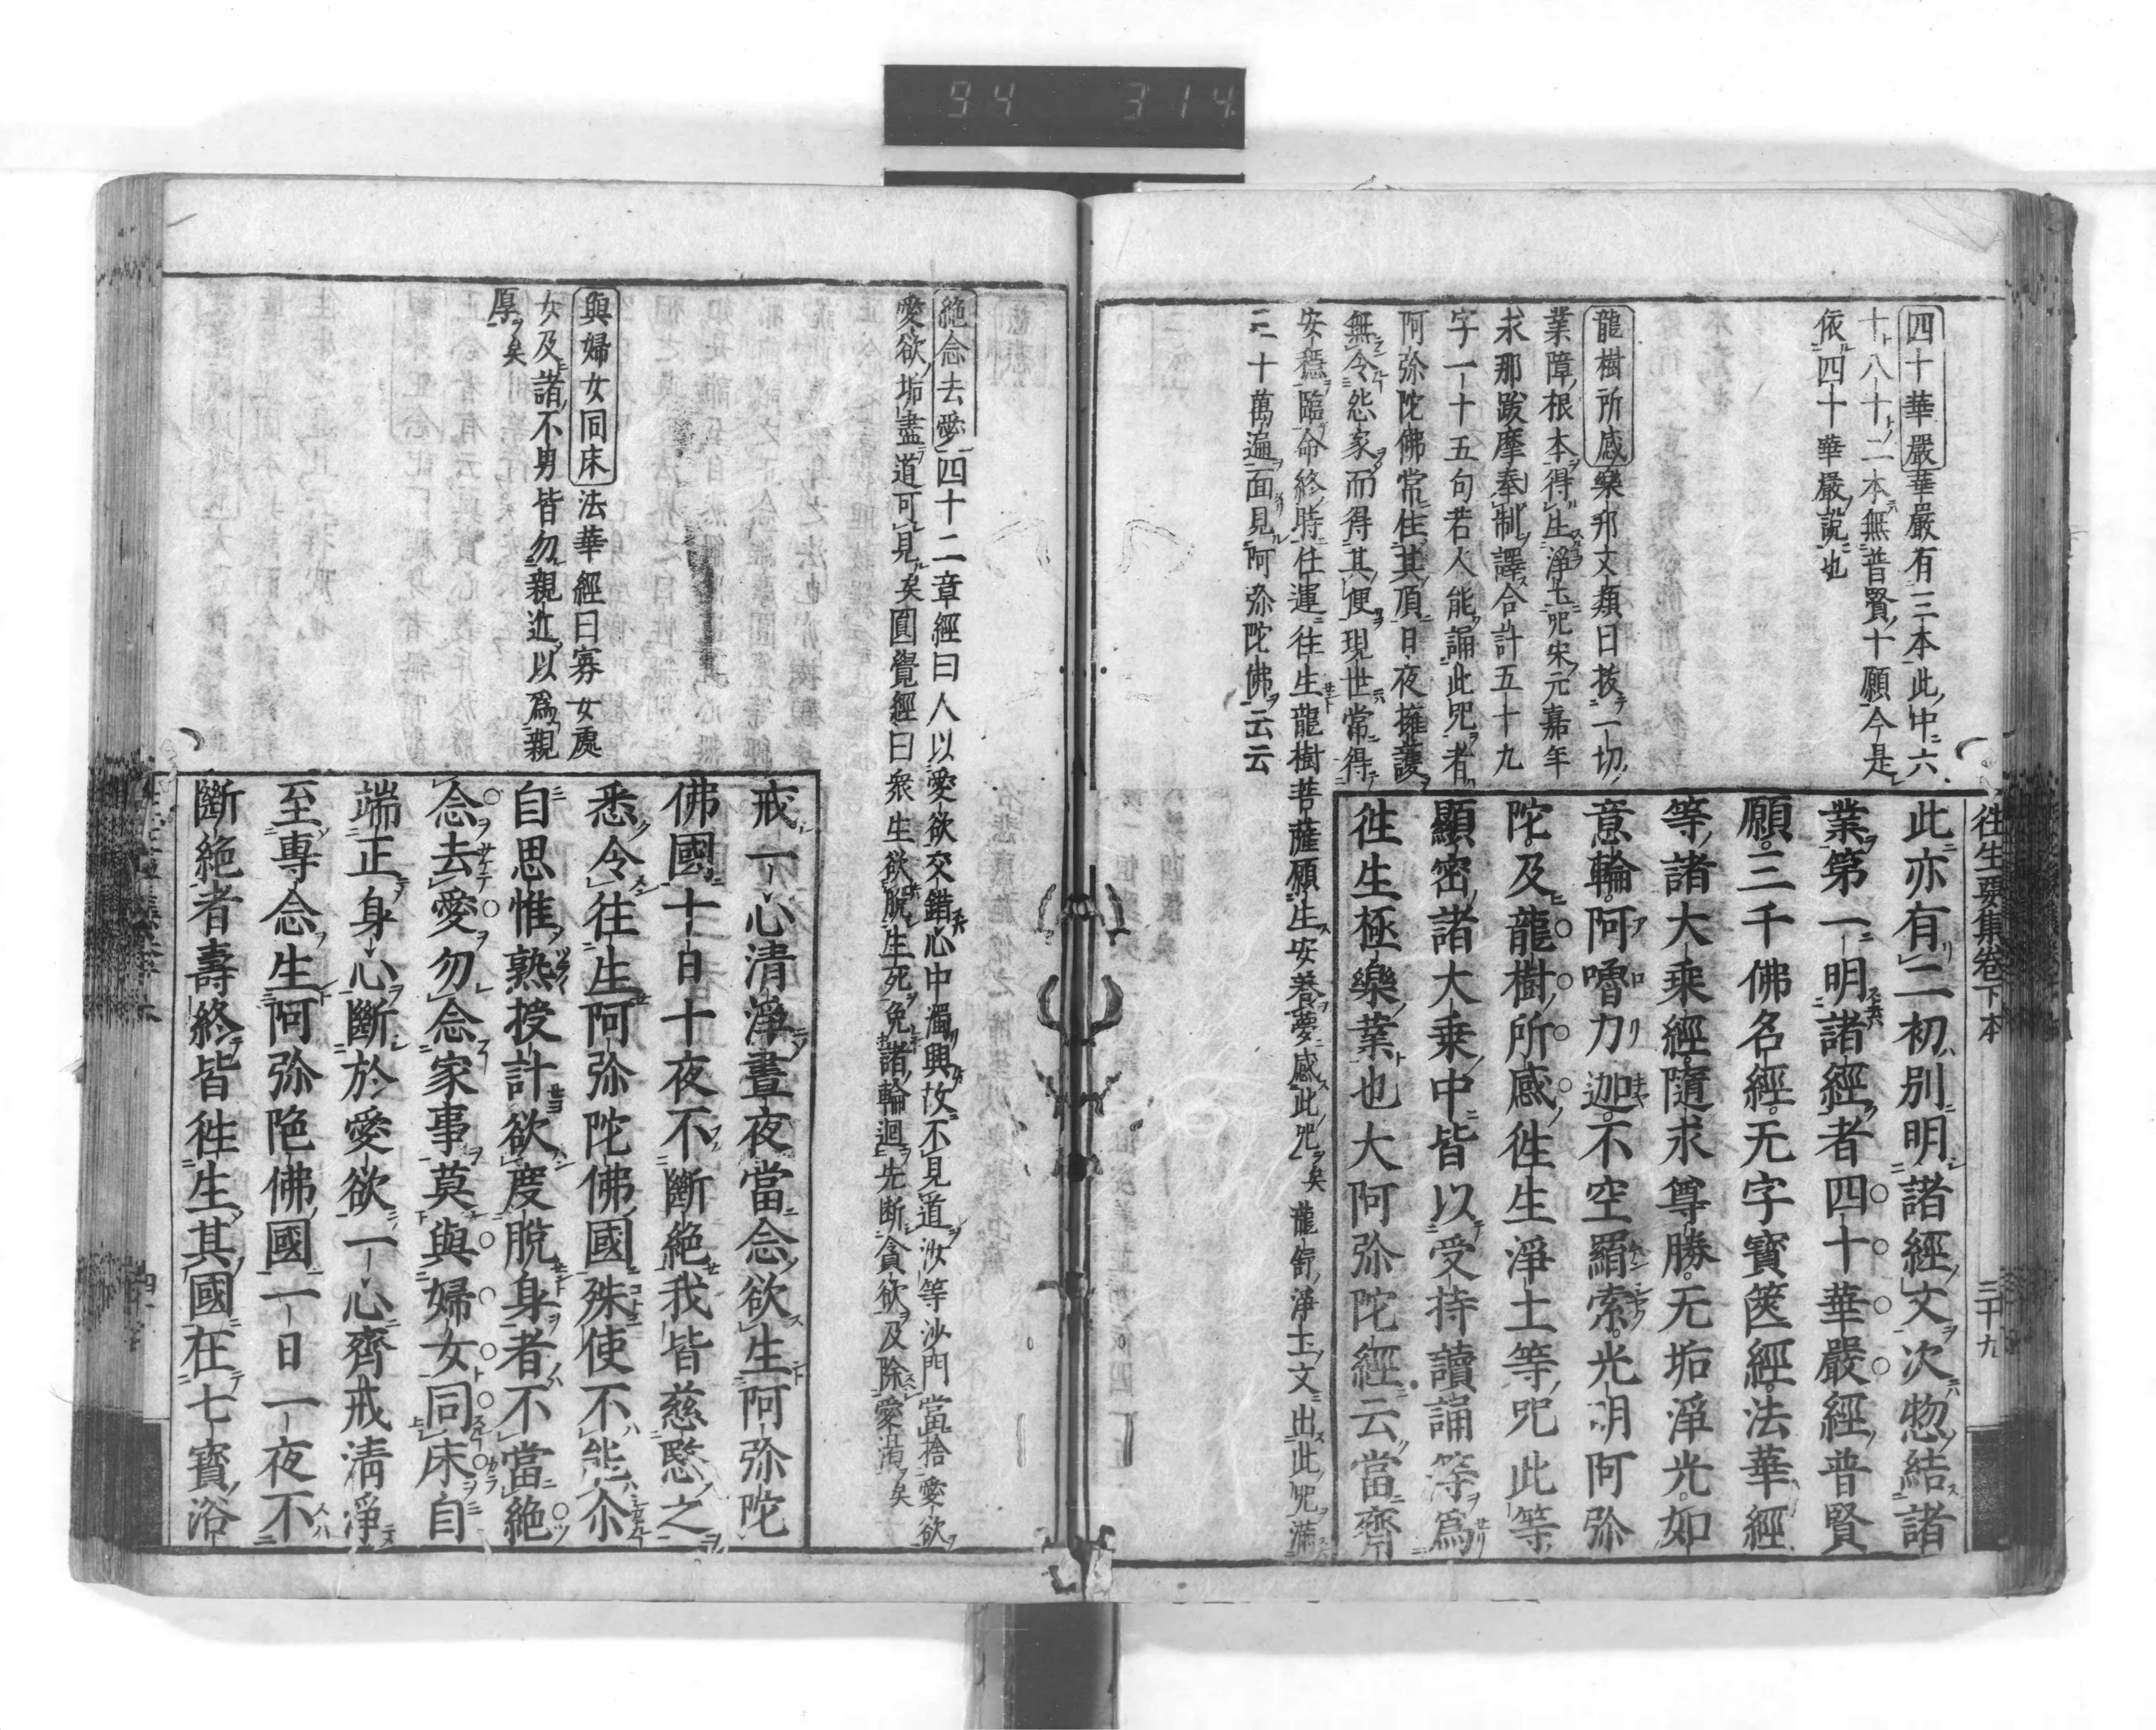 94 314
往生要集卷下本
三十九
四十華嚴華嚴有三本此中六
十八十二本無普賢十願今是
依四十華嚴說也
龍樹所感樂邦文類曰拔一切
業障根本得生淨土咒宋元嘉年
求那跋摩奉制譯合計五十九
字一十五句若人能誦此咒者
阿弥陀佛常住其頂日夜擁護
無令怨家而得其便現世常得
安穩臨命終時任運往生龍樹菩薩願生安養夢感此咒矣龍舒淨土文出此咒滿
三十萬遍面見阿弥陀佛云云
此亦有二初別明諸經文次惣結諸
業第一明諸經者四十華嚴經普賢
願。三千佛名經。无字寶篋經。法華經
等諸大乘經。隨求尊勝。无垢淨光。如
意輪。阿嚕力迦。不空羂索。光明阿弥
陀。及龍樹所感徃生淨土等咒此等
顯密諸大乘中皆以受持讀誦等為
徃生極樂業也大阿弥陀經云當齊
絶念去愛四十二章經曰人以愛欲交錯心中濁興故不見道汝等沙門當捨愛欲
愛欲垢盡道可見矣圓覺經曰衆生欲脱生死免諸輪迴先断貪欲及除愛渴矣
與婦女同床法華經曰寡女處
女及諸不男皆勿親近以為親
厚矣
戒一心清淨晝夜當念欲生阿弥陀
佛國十日十夜不斷絶我皆慈愍之
悉令往生阿弥陀佛國殊使不能尒
自思惟熟挍計欲度脱身者不當絶
念去愛勿念家事莫與婦女同床自
端正身心斷於愛欲一心齊戒清淨
至專念生阿弥陁佛國一日一夜不
斷絶者壽終皆徃生其國在七寳浴